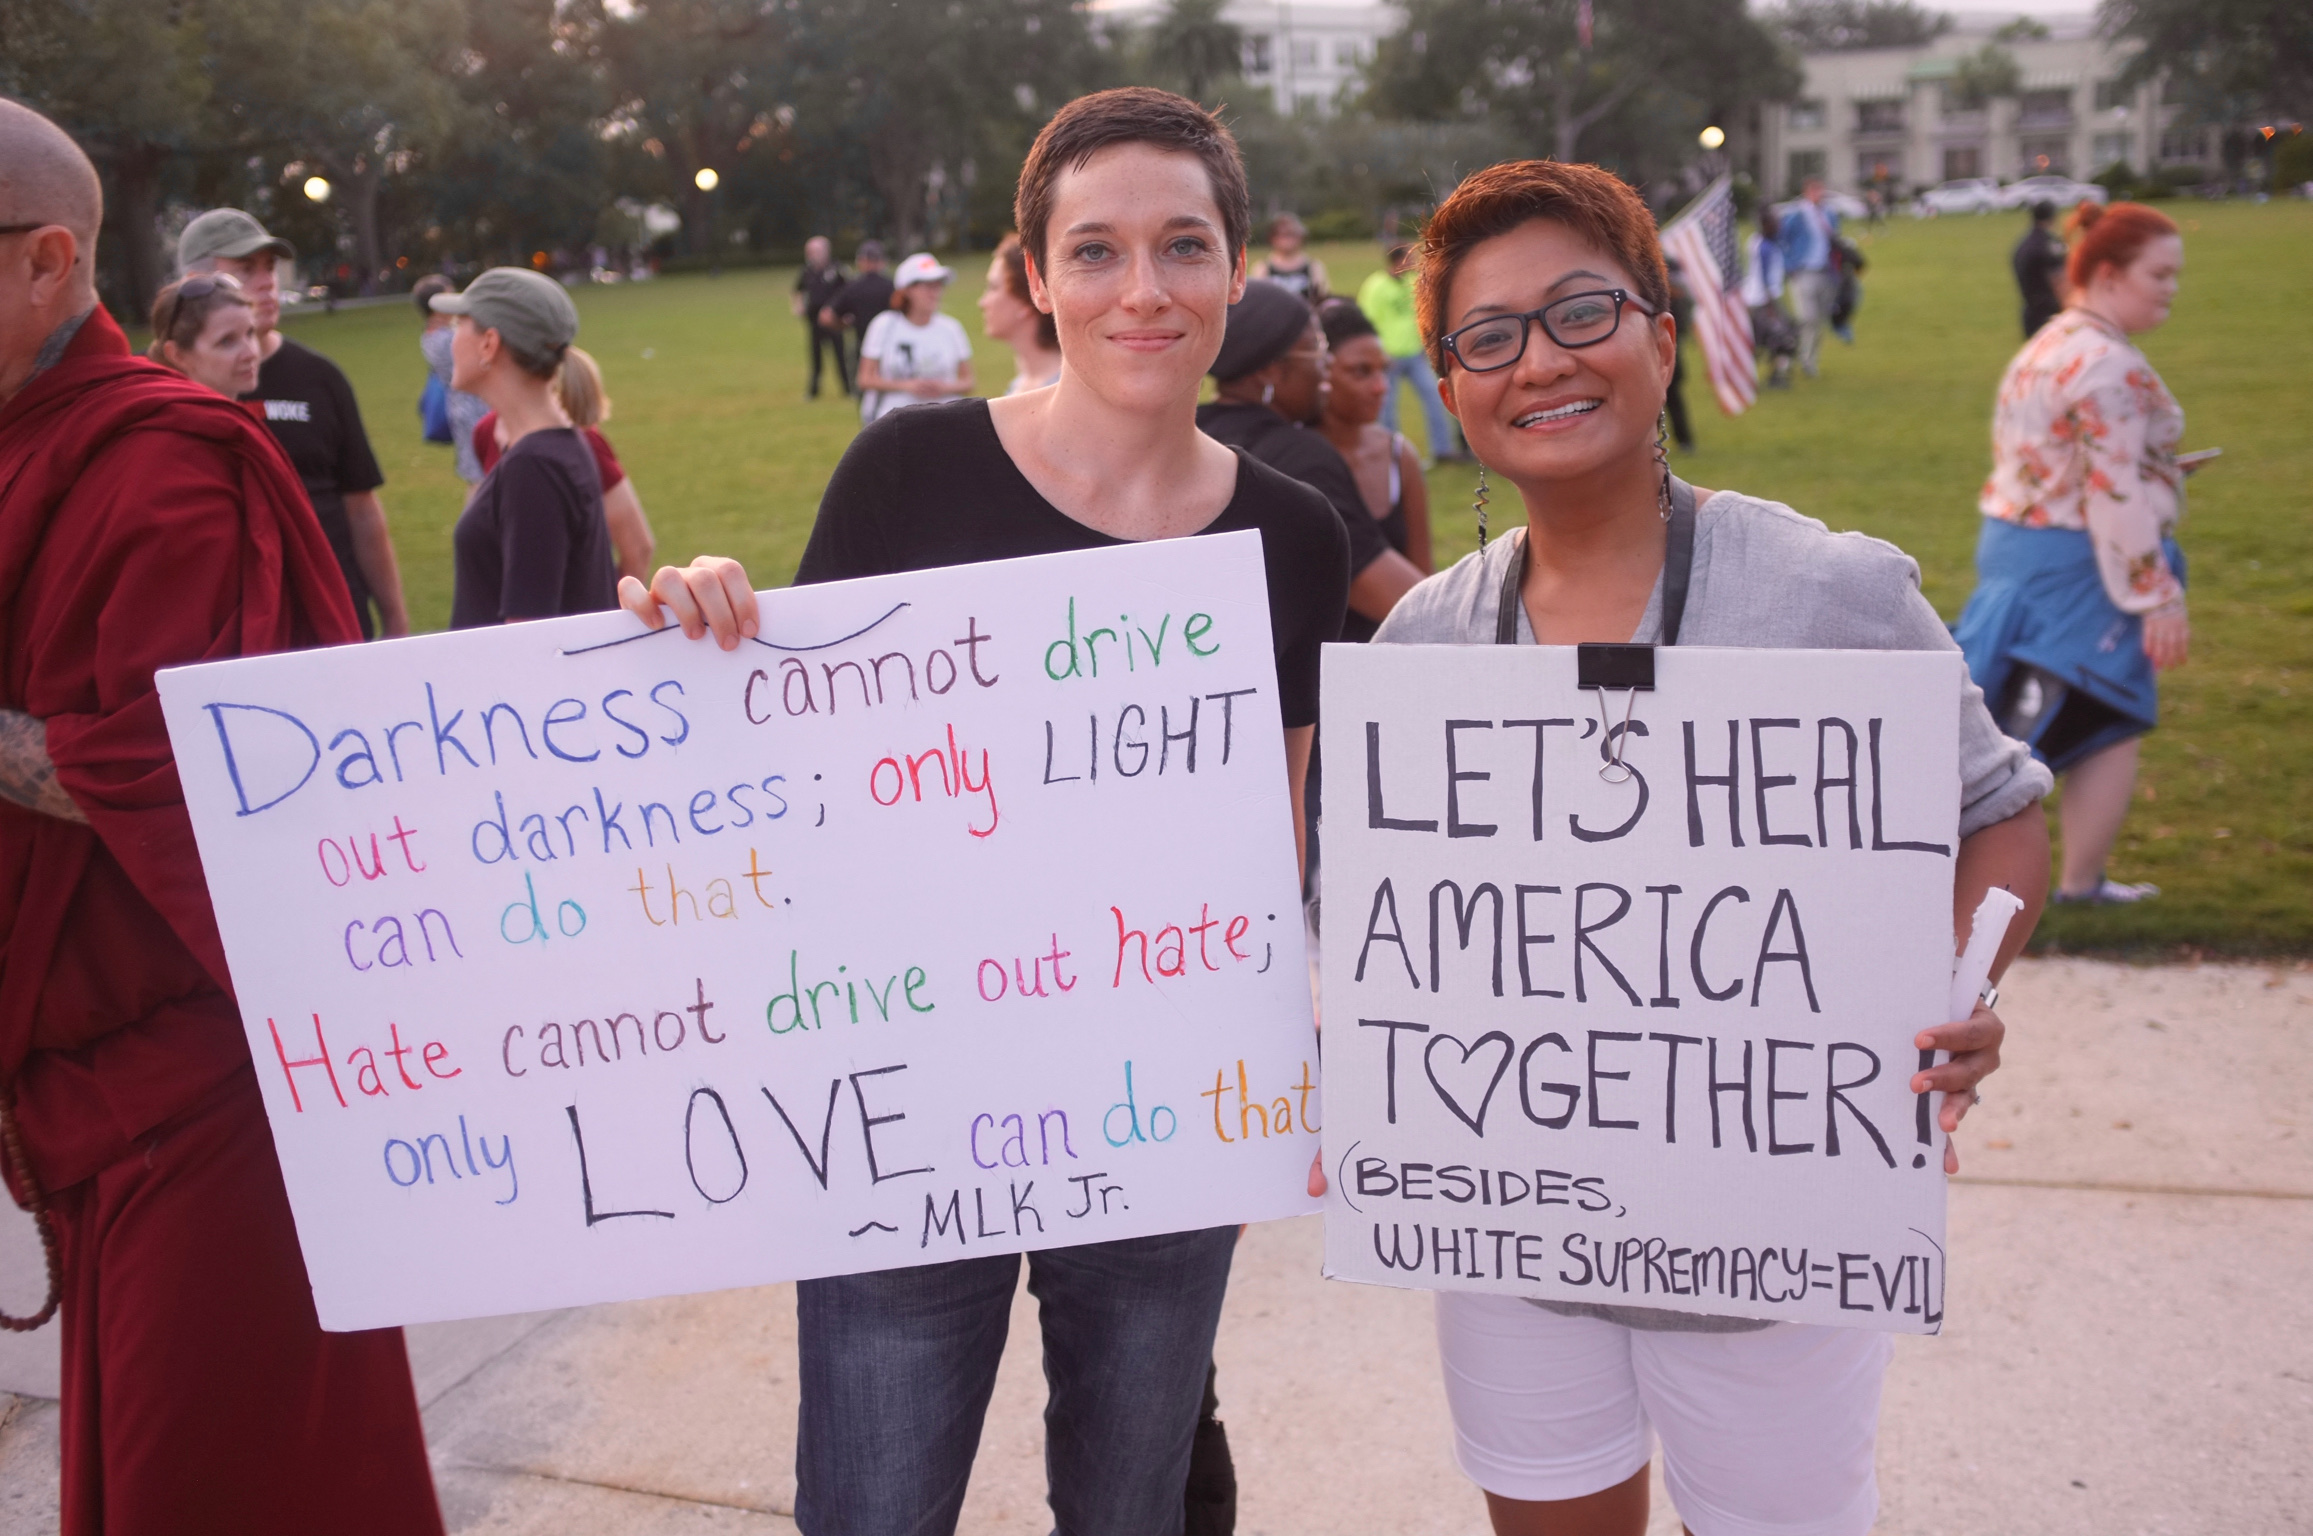 Darkness cannot drive
out darkness; only LIGHT
can do that.
Hate cannot drive out hate;
only LOVE can do that
~MLK Jr.
LET'S HEAL
AMERICA
T♡GETHER!
(BESIDES,
WHITE SUPREMACY=EVIL)
WOKE